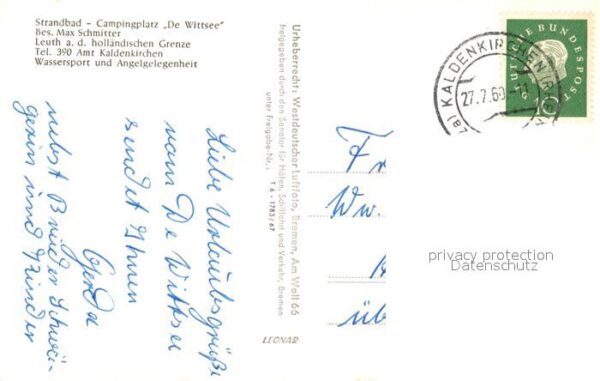 Strandbad - Campingplatz „De Wittsee"
Bes. Max Schmitter
Leuth a. d. holländischen Grenze
Tel. 390 Amt Kaldenkirchen
Wassersport und Angelgelegenheit
Liebe Urlaubsgrüße
vom De Wittsee
sendet Ihnen
Gerda
nebst Bruder Schwä-
gerin und Kinder
Urheberrecht: Westdeutscher Luftfoto, Bremen, Am Wall 66
freigegeben durch den Senator für Häfen, Schiffahrt und Verkehr, Bremen
unter Freigabe-Nr.: T 6 - 1783/67
LEONAR
Fr
Ww.
üb
DEUTSCHE BUNDESPOST
10
KALDENKIRCHEN
27.7.60
privacy protection
Datenschutz